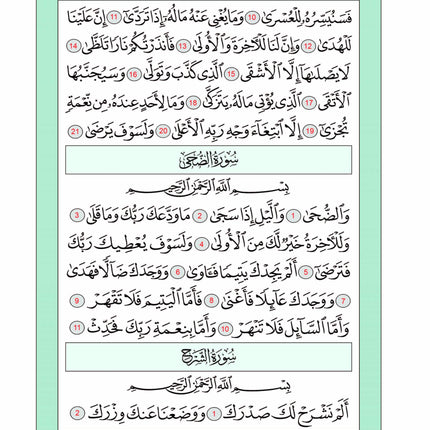 فَسَنُيَسِّرُهُۥ لِلۡعُسۡرَىٰ 10 وَمَا يُغۡنِي عَنۡهُ مَالُهُۥٓ إِذَا تَرَدَّىٰٓ 11 إِنَّ عَلَيۡنَا
لَلۡهُدَىٰ 12 وَإِنَّ لَنَا لَلۡأٓخِرَةَ وَٱلۡأُولَىٰ 13 فَأَنذَرۡتُكُمۡ نَارٗا تَلَظَّىٰ 14
لَا يَصۡلَىٰهَآ إِلَّا ٱلۡأَشۡقَى 15 ٱلَّذِي كَذَّبَ وَتَوَلَّىٰ 16 وَسَيُجَنَّبُهَا
ٱلۡأَتۡقَى 17 ٱلَّذِي يُؤۡتِي مَالَهُۥ يَتَزَكَّىٰ 18 وَمَا لِأَحَدٍ عِندَهُۥ مِن نِّعۡمَةٖ
تُجۡزَىٰٓ 19 إِلَّا ٱبۡتِغَآءَ وَجۡهِ رَبِّهِ ٱلۡأَعۡلَىٰ 20 وَلَسَوۡفَ يَرۡضَىٰ 21
سُورَةُ الضُّحَىٰ
بِسۡمِ ٱللَّهِ ٱلرَّحۡمَٰنِ ٱلرَّحِيمِ
وَٱلضُّحَىٰ 1 وَٱلَّيۡلِ إِذَا سَجَىٰ 2 مَا وَدَّعَكَ رَبُّكَ وَمَا قَلَىٰ 3
وَلَلۡأٓخِرَةُ خَيۡرٞ لَّكَ مِنَ ٱلۡأُولَىٰ 4 وَلَسَوۡفَ يُعۡطِيكَ رَبُّكَ
فَتَرۡضَىٰٓ 5 أَلَمۡ يَجِدۡكَ يَتِيمٗا فَـَٔاوَىٰ 6 وَوَجَدَكَ ضَآلّٗا فَهَدَىٰ
7 وَوَجَدَكَ عَآئِلٗا فَأَغۡنَىٰ 8 فَأَمَّا ٱلۡيَتِيمَ فَلَا تَقۡهَرۡ 9
وَأَمَّا ٱلسَّآئِلَ فَلَا تَنۡهَرۡ 10 وَأَمَّا بِنِعۡمَةِ رَبِّكَ فَحَدِّثۡ 11
سُورَةُ الشَّرۡحِ
بِسۡمِ ٱللَّهِ ٱلرَّحۡمَٰنِ ٱلرَّحِيمِ
أَلَمۡ نَشۡرَحۡ لَكَ صَدۡرَكَ 1 وَوَضَعۡنَا عَنكَ وِزۡرَكَ 2